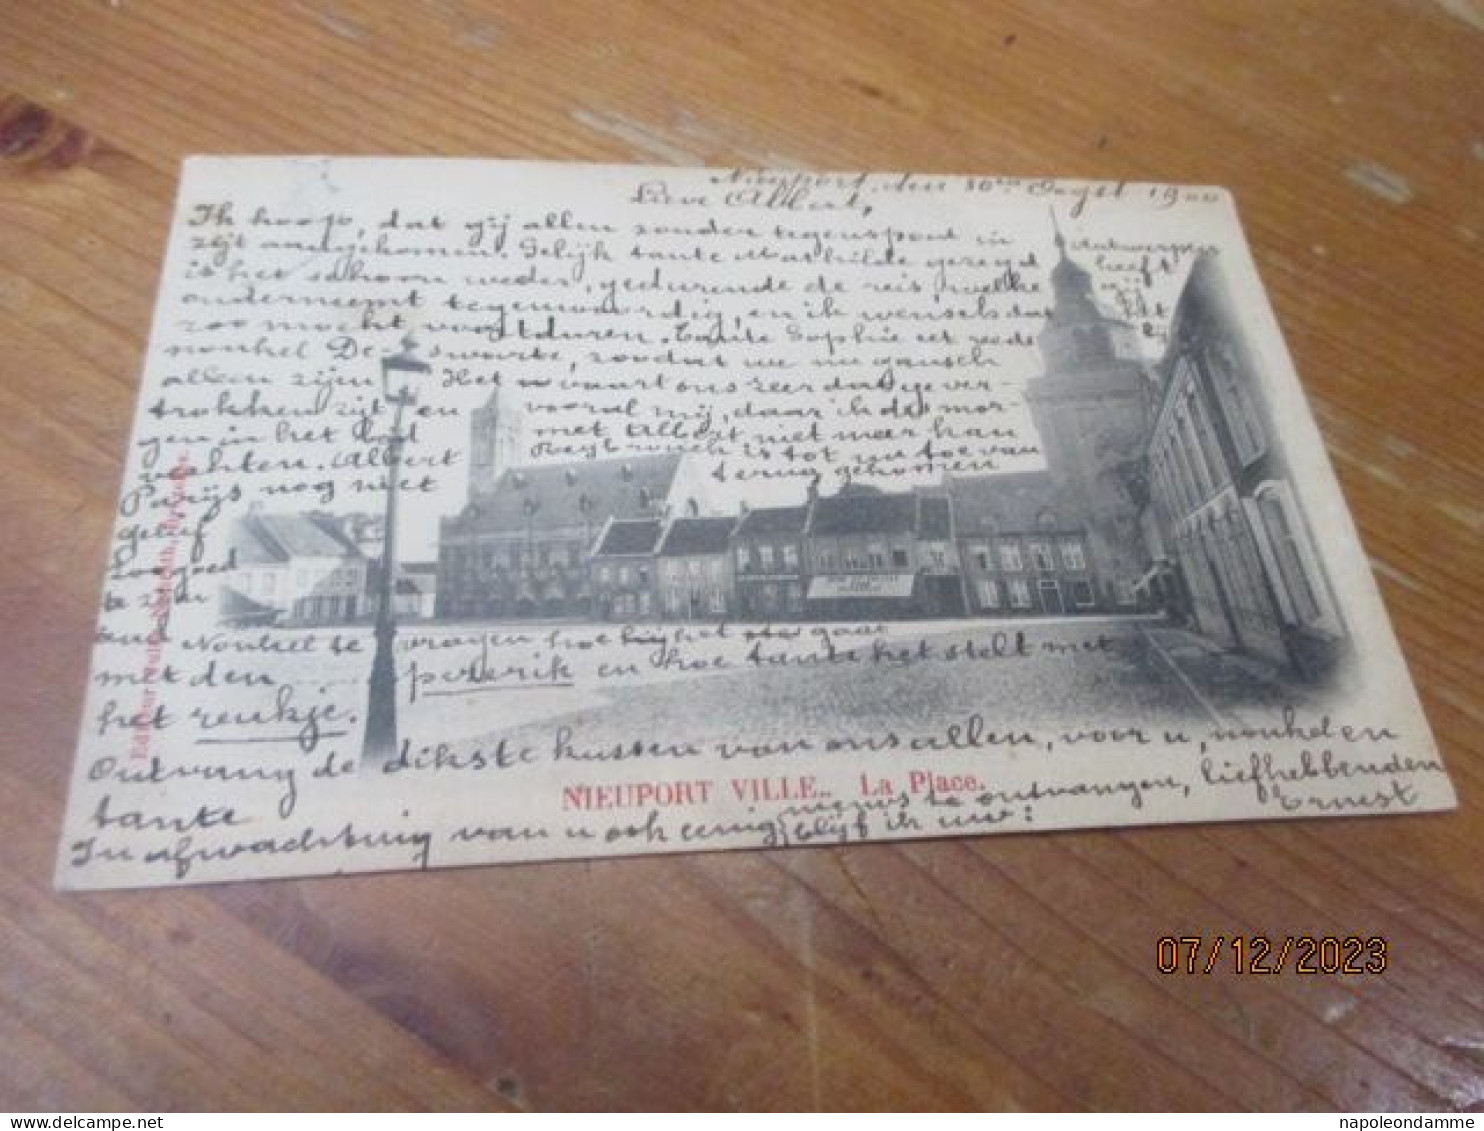 Nieuport, den 10en Oogst 1900
Lieve Albert,
Ik hoop, dat gij allen zonder tegenspoed in Antwerpen
zijt aangekomen. Gelijk tante Mathilde gezegd heeft
is het schoon weder, gedurende de reis, welke gij
onderneemt tegenwoordig, en ik wensch dat dit
zoo mocht voortduren. Tante Sophie et reeds bij
nonkel De swarte, zoodat we nu gansch
allen zijn Het waart ons zeer dat ge ver-
trokken zijt en vooral mij, daar ik des mor-
gen in het bad met Albert niet meer kan
wachten. Albert is tot nu toe van
Parijs nog niet terug gekomen
gelief
zoo goed
te zijn
aan Nonkel te vragen hoe het gaat
met den en hoe tante het stelt met
het reukje.
Ontvang de dikste kussen van ons allen, voor u, nonkel en
tante
In afwachting van u ook eenig nieuws te ontvangen, liefhebbenden
blijf ik uw: Ernest
NIEUPORT VILLE.. La Place.
07/12/2023
napoleondamme